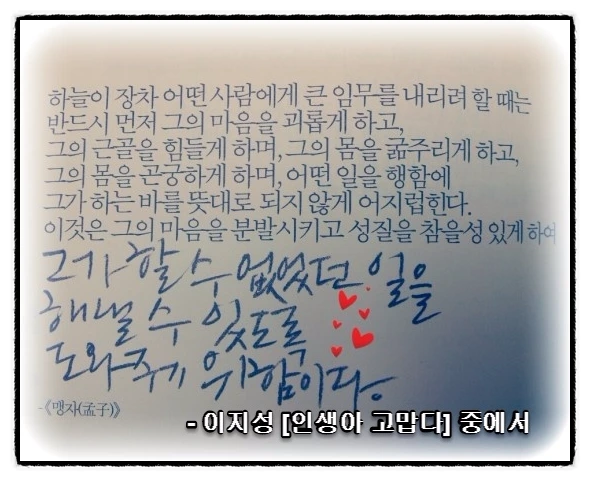 하늘이 장차 어떤 사람에게 큰 임무를 내리려 할 때는
반드시 먼저 그의 마음을 괴롭게 하고,
그의 근골을 힘들게 하며, 그의 몸을 굶주리게 하고,
그의 몸을 곤궁하게 하며, 어떤 일을 행함에
그가 하는 바를 뜻대로 되지 않게 어지럽힌다.
이것은 그의 마음을 분발시키고 성질을 참을성 있게 하여
그가 할 수 없었던 일을
해낼 수 있도록
도와주기 위함이다.
-《맹자(孟子)》
- 이지성 [인생아 고맙다] 중에서